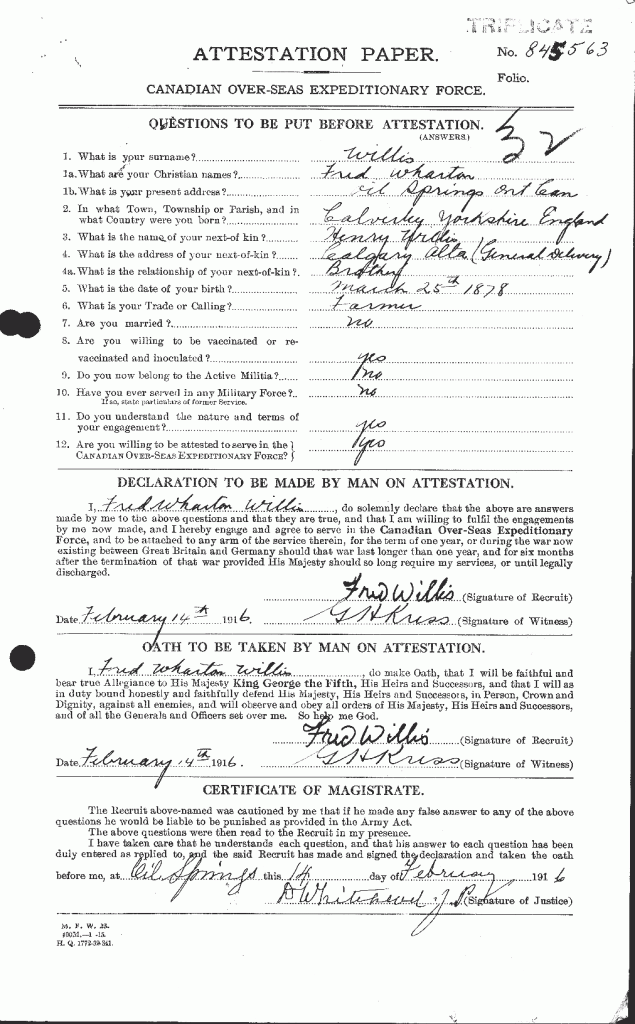 TRIPLICATE
ATTESTATION PAPER.
No. 845563
Folio.
CANADIAN OVER-SEAS EXPEDITIONARY FORCE.
QUESTIONS TO BE PUT BEFORE ATTESTATION.
(ANSWERS.)
1. What is your surname? Willis
1a. What are your Christian names? Fred Wharton
1b. What is your present address? Oil Springs Ont Can
2. In what Town, Township or Parish, and in
what Country were you born? Calverley Yorkshire England
3. What is the name of your next-of kin? Henry Willis
4. What is the address of your next-of-kin? Calgary Alta (General Delivery)
4a. What is the relationship of your next-of-kin? Brother
5. What is the date of your birth? March 25th 1878
6. What is your Trade or Calling? Farmer
7. Are you married? no
8. Are you willing to be vaccinated or re-
vaccinated and inoculated? yes
9. Do you now belong to the Active Militia? no
10. Have you ever served in any Military Force? no
If so, state particulars of former Service.
11. Do you understand the nature and terms of
your engagement? yes
12. Are you willing to be attested to serve in the
CANADIAN OVER-SEAS EXPEDITIONARY FORCE? yes
DECLARATION TO BE MADE BY MAN ON ATTESTATION.
I, Fred Wharton Willis, do solemnly declare that the above are answers
made by me to the above questions and that they are true, and that I am willing to fulfil the engagements
by me now made, and I hereby engage and agree to serve in the Canadian Over-Seas Expeditionary
Force, and to be attached to any arm of the service therein, for the term of one year, or during the war now
existing between Great Britain and Germany should that war last longer than one year, and for six months
after the termination of that war provided His Majesty should so long require my services, or until legally
discharged.
Fred Willis (Signature of Recruit)
Date February 14th 1916. G H Kriss (Signature of Witness)
OATH TO BE TAKEN BY MAN ON ATTESTATION.
I, Fred Wharton Willis, do make Oath, that I will be faithful and
bear true Allegiance to His Majesty King George the Fifth, His Heirs and Successors, and that I will as
in duty bound honestly and faithfully defend His Majesty, His Heirs and Successors, in Person, Crown and
Dignity, against all enemies, and will observe and obey all orders of His Majesty, His Heirs and Successors,
and of all the Generals and Officers set over me. So help me God.
Fred Willis (Signature of Recruit)
Date February 14th 1916. G H Kriss (Signature of Witness)
CERTIFICATE OF MAGISTRATE.
The Recruit above-named was cautioned by me that if he made any false answer to any of the above
questions he would be liable to be punished as provided in the Army Act.
The above questions were then read to the Recruit in my presence.
I have taken care that he understands each question, and that his answer to each question has been
duly entered as replied to, and the said Recruit has made and signed the declaration and taken the oath
before me, at Oil Springs this 14 day of February 1916
J.P. (Signature of Justice)
M. F. W. 23.
H. Q. 1772-39-841.